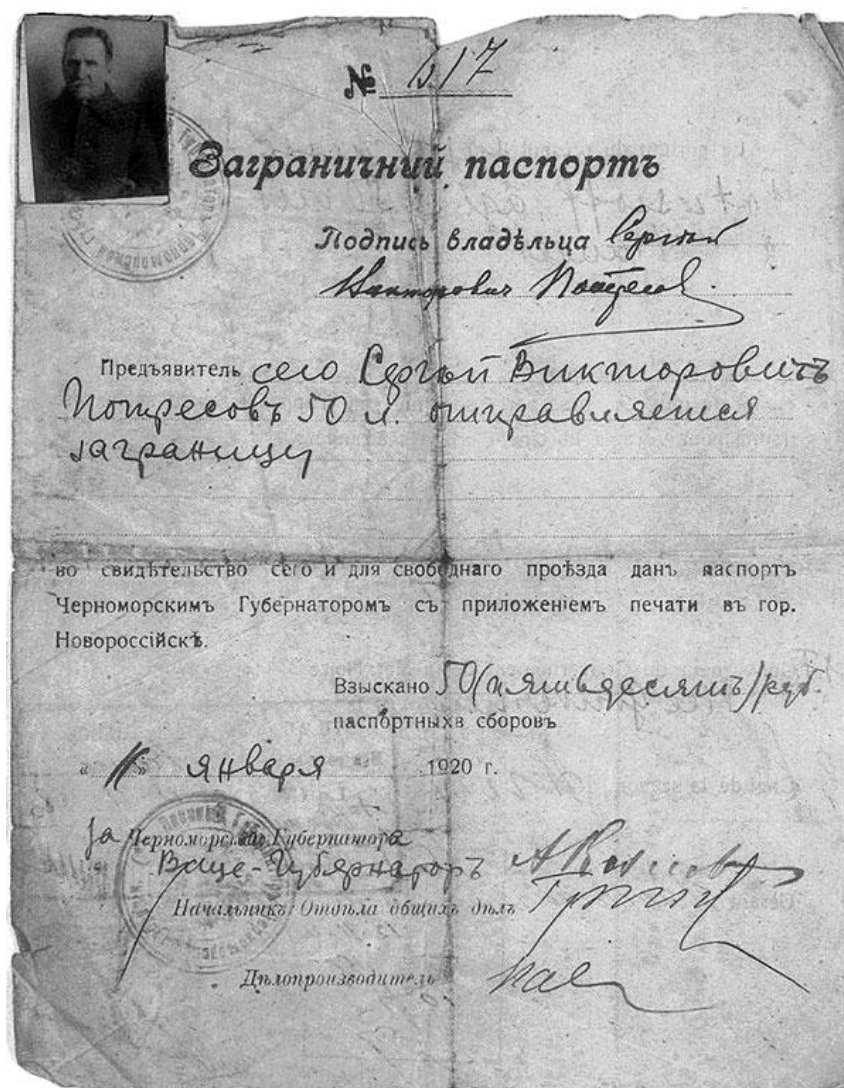 № 517
Заграничний паспортъ
Подпись владѣльца Сергѣй
Викторовичъ Потресов
Предъявитель сего Сергѣй Викторовичъ
Потресовъ 50 л. отправляется
заграницу
во свидѣтельство сего и для свободнаго проѣзда данъ паспортъ
Черноморскимъ Губернаторомъ съ приложеніемъ печати въ гор.
Новороссійскѣ.
Взыскано 50 (пятьдесятъ) руб.
паспортныхъ сборовъ
„11" января 1920 г.
За Черноморскаго Губернатора
Вице-Губернаторъ
Начальникъ Отдѣла общихъ дѣлъ
Дѣлопроизводитель